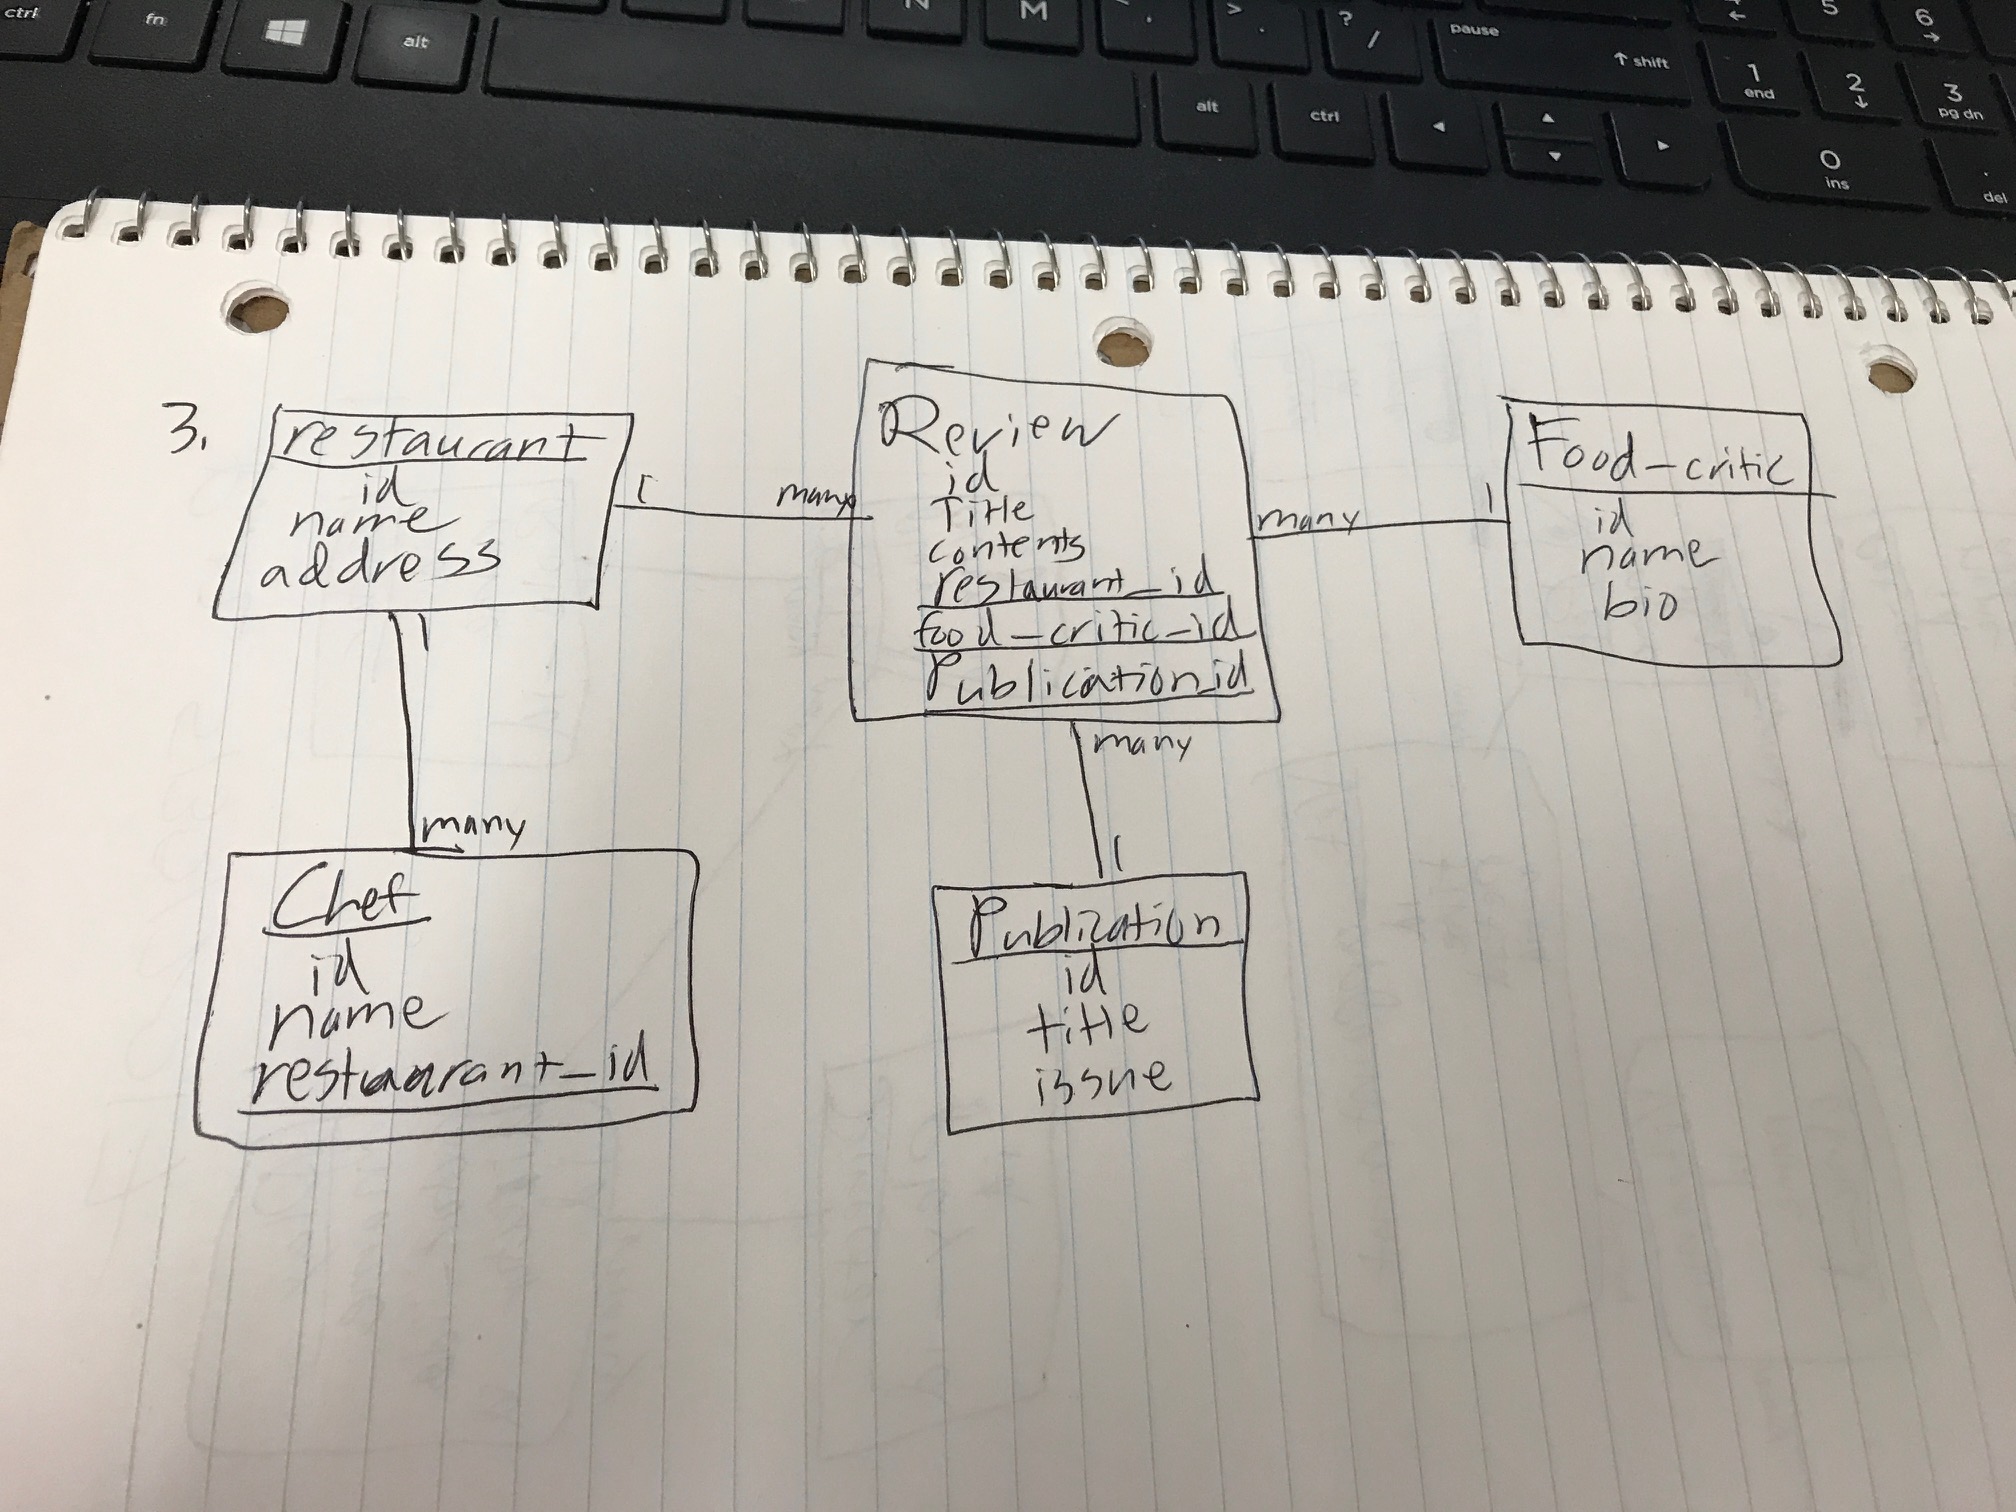 ctrl
fn
alt
N
M
?
/
pause
↑ shift
alt
ctrl
5
6
1
end
2
3
pg dn
0
ins
.
del
3.
restaurant
id
name
address
1
many
Review
id
Title
contents
restaurant_id
food_critic_id
Publication_id
many
1
Food_critic
id
name
bio
1
many
Chef
id
name
restaurant_id
many
1
Publication
id
title
issue